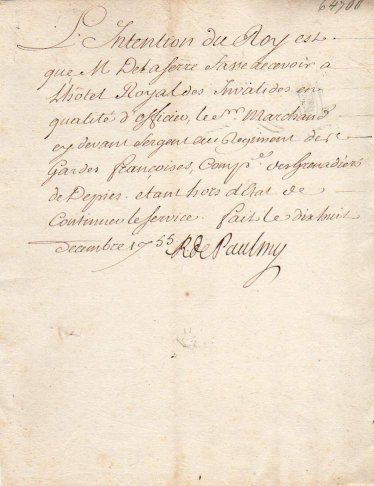 64700
L'Intention du Roy est
que M. DeLaserre fasse recevoir a
L'hôtel Royal des Invalides en
qualité d'officier, le Sr. Marchand
cy devant Sergent au Regiment des
Gardes françoises, Comp.e des Grenadiers
de etant hors d'Etat de
Continuer le service. fait le dix huit
decembre 1755 R de Paulmy